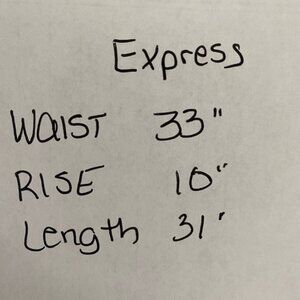 Express
WAIST 33"
RISE 10"
Length 31"